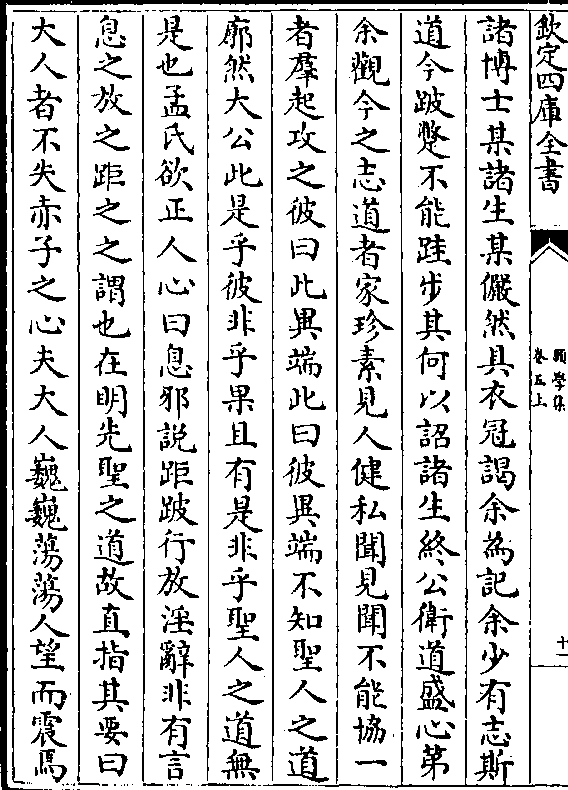 欽定四庫全書
願學集
卷五上
十二
諸博士某諸生某儼然具衣冠謁余為記余少有志斯
道今跛蹩不能跬步其何以詔諸生終公衛道盛心第
余觀今之志道者家珍素見人健私聞見聞不能協一
者羣起攻之彼曰此異端此曰彼異端不知聖人之道
廓然大公此是乎彼非乎果且有是非乎聖人之道無
是也孟氏欲正人心曰息邪説距跛行放淫辭非有言
息之放之距之之謂也在明先聖之道故直指其要曰
大人者不失赤子之心夫大人巍巍蕩蕩人望而震焉